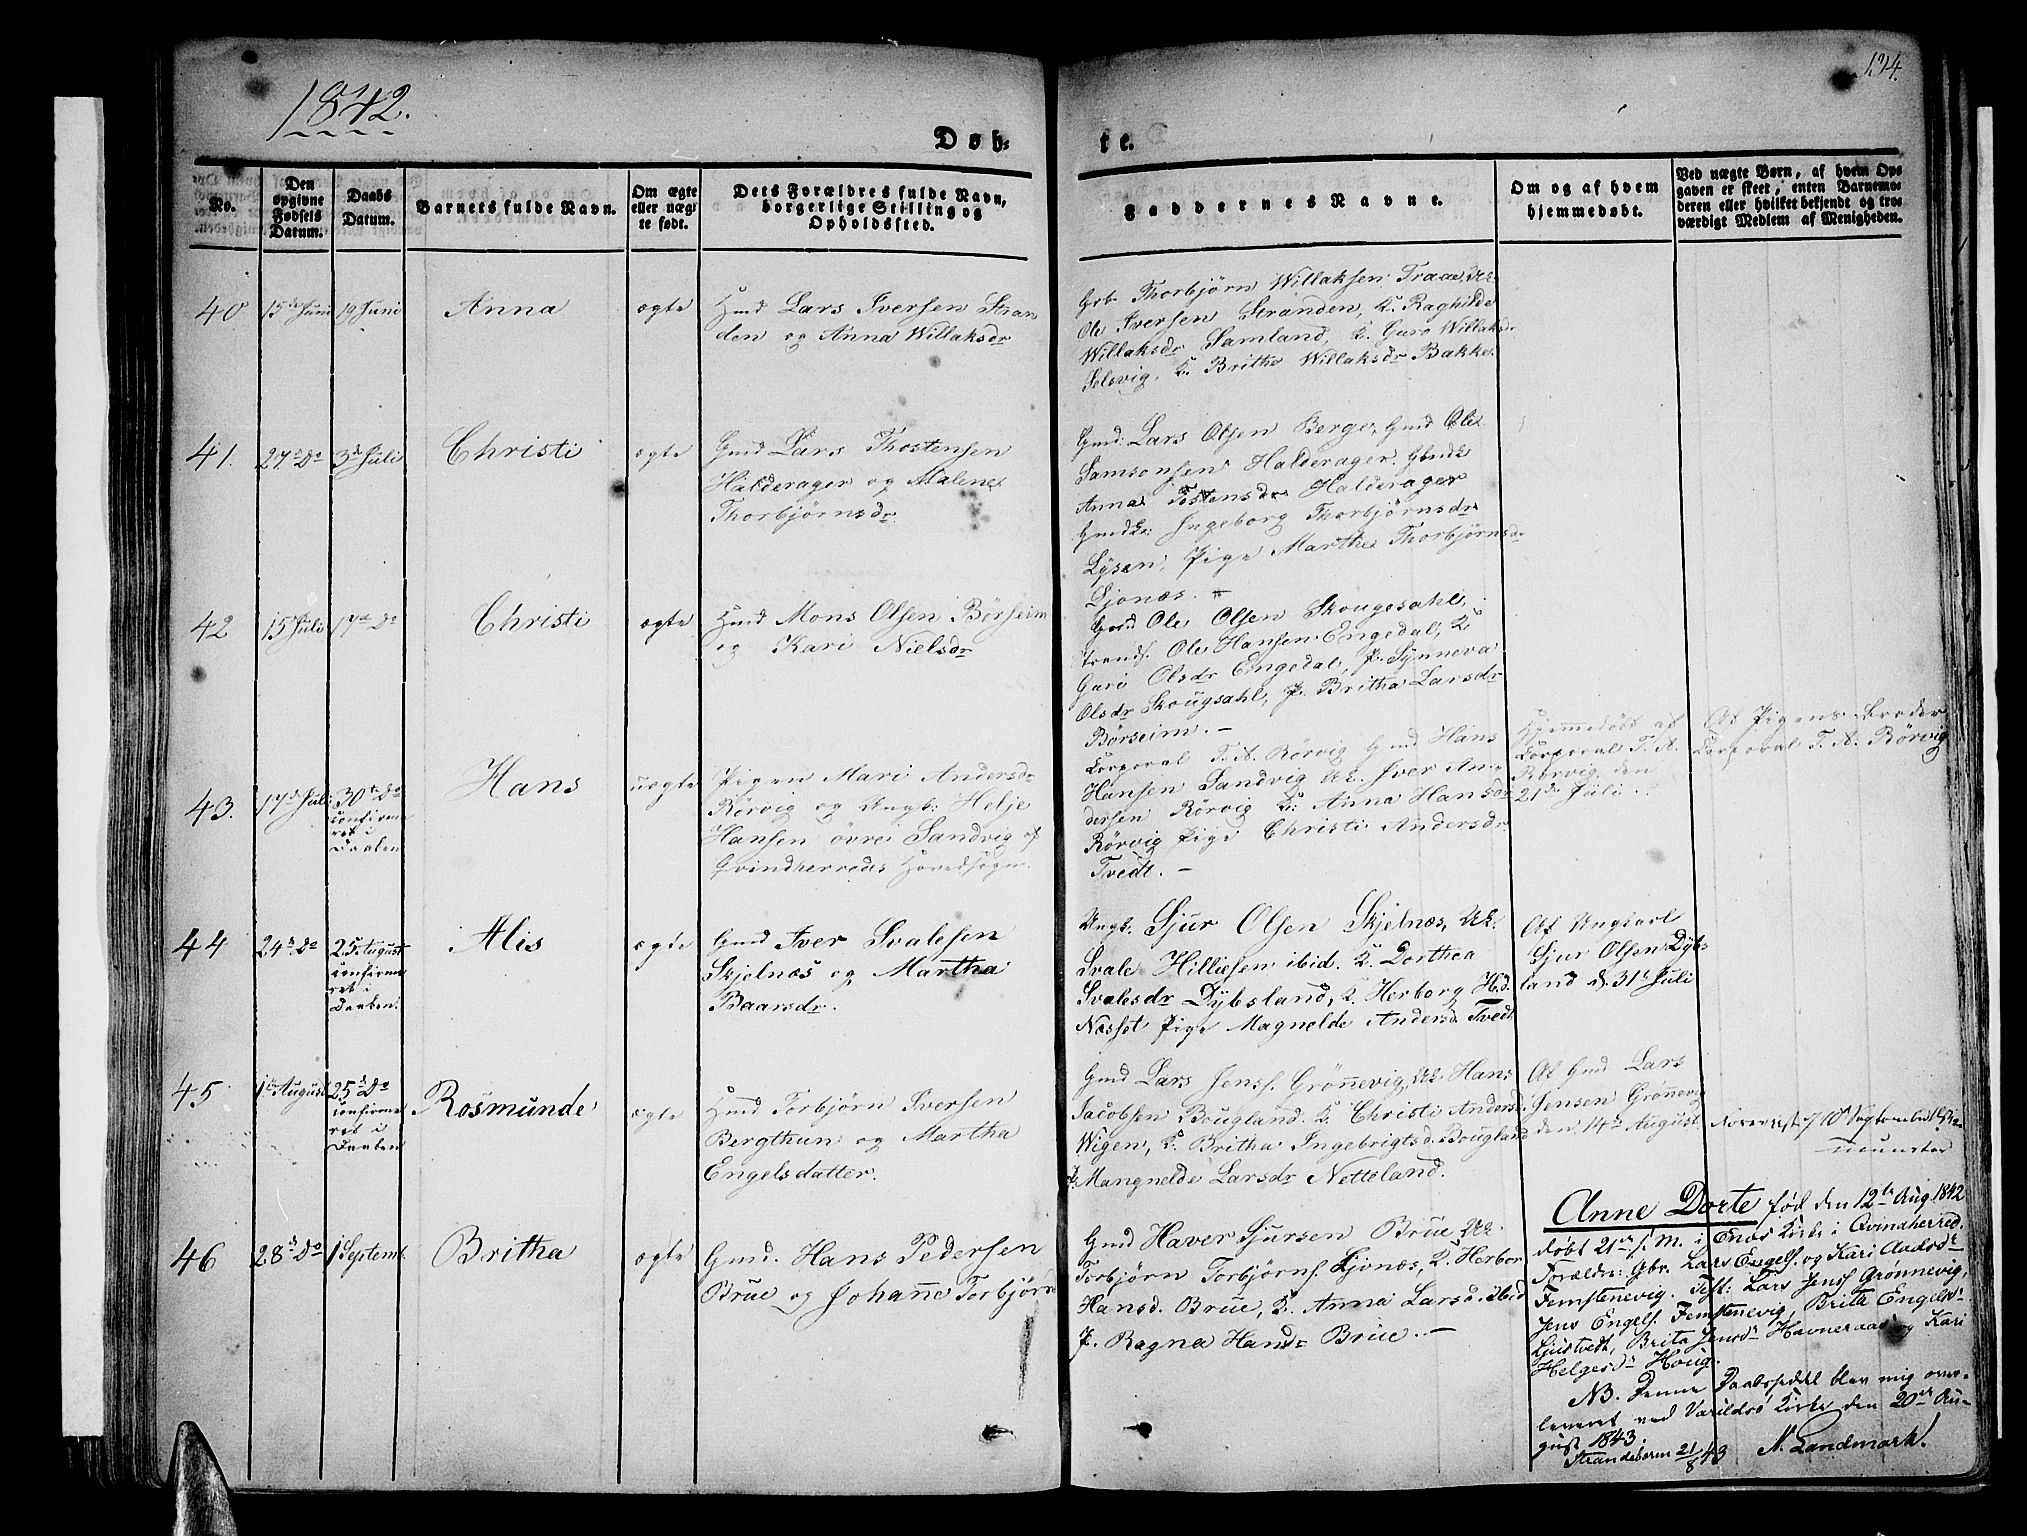 1842.
124.
Døb-
te.
No.
Den opgivne Fødsels Datum.
Daabs Datum.
Barnets fulde Navn.
Om ægte eller uægte født.
Dets Forældres fulde Navn, borgerlige Stilling og Opholdssted.
Faddernes Navne.
Om og af hvem hjemmedøbt.
Ved uægte Børn, af hvem Opgaven er skeet, enten Barnemoderen eller hvilket bekjendt og troværdigt Medlem af Menigheden.
40
15de Juni
19 Juni
Anna
ægte
Hmd Lars Iversen Stran
den og Anna Willaksdr
Gbr. Thorbjörn Willaksen Traae, UK.
Ole Iversen Stranden, K. Raghilde
Willaksdr Samland, K. Guro Willaksdr
Selsvig, K. Britha Willaksdr Bakke.
41.
27de Do
3de Juli
Christi
ægte
Gmd Lars Thostensen
Halderager og Malene
Thorbjörnsdr
Gmd: Lars Olsen Berge, Gmd Ole
Samsonsen Halderager.
Anna Tostensdr Halderager
Gmdk: Ingeborg Thorbjörnsdr
Lysen, Pige Marthe Thorbjörnsdr
Ljonæs.
42
15 Juli
17de Do
Christi
ægte
Hmd Mons Olsen Börseim
og Kari Nielsdr
Gmd Ole Olsen Skougesahl,
Strands. Ole Hansen Engedal, K.
Guri Olsdr Engedal, P. Synneva
Olsdr Skougsahl, P. Britha Larsdr
Börseim. –
43.
17de Juli
30te Do
confirme
ret i
Daaben
Hans
uægte
Pigen Mari Andersdr
Rörvig og Ungk: Helje
Hansen övre Sandvig af
Qvindherreds Hovedsogn.
Corporal T. A. Rörvig Gmd Hans
Hansen Sandvig UK. Iver An-
dersen Rörvig K: Anna Hansdr
Rörvig Pige Christi Andersdr
Tvedt. –
Hjemmedöbt af
Corporal T. A.
Rörvig den
21de Juli.
Af Pigens Broder
Corporal T. A. Rörvig
44
24de Do
25 August
confirme
ret i
Daaben.
Alis
ægte
Gmd Iver Svalesen
Skjelnæs og Martha
Baarsdr.
Ungk. Sjur Olsen Skjelnæs, UK.
Svale Hilliesen ibid. K. Dorthea
Svalesdr Dybsland, K. Herborg H.d.
Næsset Pige Magnelde Andersd. Tvedt
Af Ungkarl
Sjur Olsen Dybs-
land d. 31te Juli
45
1ste August
25de Do
confirme
ret i
Daaben
Rosmunde
ægte
Hmd Torbjörn Iversen
Bergthun og Martha
Engelsdatter.
Gmd Lars Jens. Grönnevig, UK. Hans
Jacobsen Bougland. K. Christi Andersd.
Wigen, K. Britha Ingebrigtsd. Bougland
P. Mangnelde Larsdr Netteland.
Af Gmd Lars
Jensen Grönnevig
den 14de August
46
28de Do
1 Septembr.
Britha
ægte
Gmd. Hans Pedersen
Brue og Johanne Torbjörnsdr
Gmd Haver Sjursen Brue, UK.
Torbjörn Torbjörns. Ljonæs, K. Herbor
Hansd. Brue, K. Anna Larsd. ibid
P. Ragna Hansdr Brue. –
Anne Dorte född den 12te Aug 1842
döbt 21de s. M. i Enes Kirke i Qvindherred.
Forældre: Gbr. Lars Engels. og Kari Andsdr
Femstenevig. Test: Lars Jens. Grönnevig,
Jens Engels. Femstenevig, Brita Engelsdr
Ljustvedt, Brita Jensdr Havneraas og Kari
Helgesdr Houg.
NB. Denne Daabsseddel blev mig over-
leveret ved Varildsö Kirke den 20de Au-
gust 1843.
Strandebarm 21/8 43 N. Landmark.